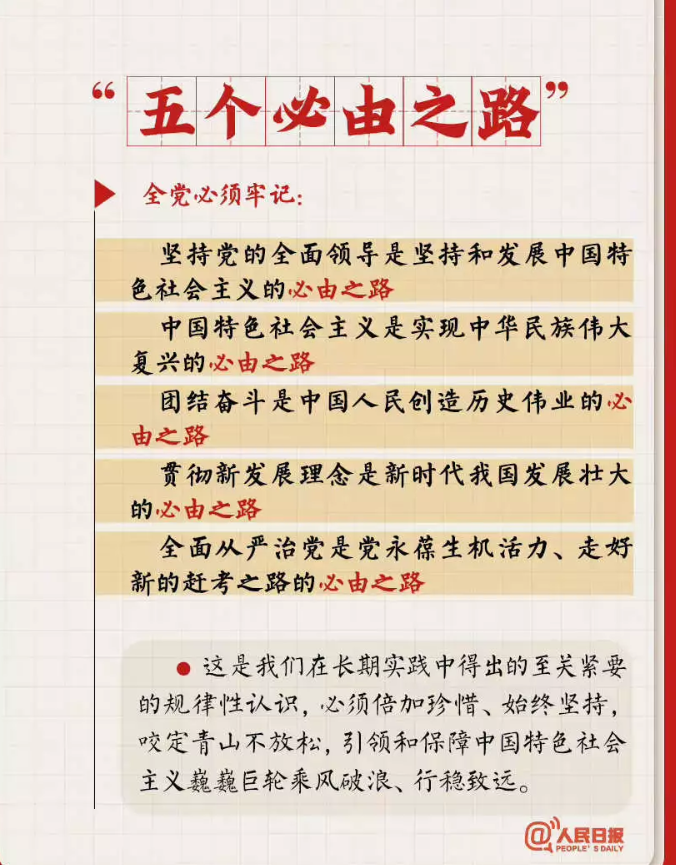 “五个必由之路”
全党必须牢记：
坚持党的全面领导是坚持和发展中国特
色社会主义的必由之路
中国特色社会主义是实现中华民族伟大
复兴的必由之路
团结奋斗是中国人民创造历史伟业的必
由之路
贯彻新发展理念是新时代我国发展壮大
的必由之路
全面从严治党是党永葆生机活力、走好
新的赶考之路的必由之路
这是我们在长期实践中得出的至关紧要
的规律性认识，必须倍加珍惜、始终坚持，
咬定青山不放松，引领和保障中国特色社会
主义巍巍巨轮乘风破浪、行稳致远。
@人民日报
PEOPLE'S DAILY